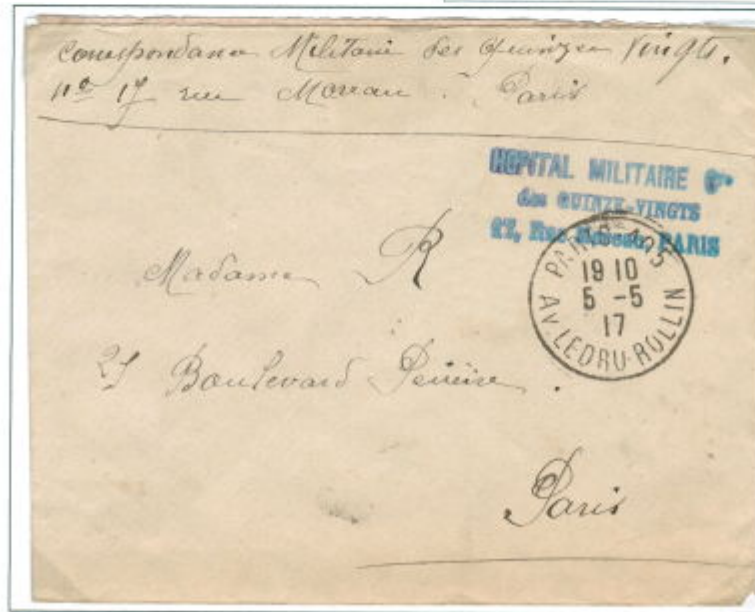 Correspondance Militaire des Quinzes Vingts.
n° 17 rue Moreau. Paris
HOPITAL MILITAIRE
des QUINZE-VINGTS
Rue Moreau, PARIS
PARIS
19 10
5 -5
17
AV. LEDRU-ROLLIN
Madame R
Boulevard Pereire.
Paris